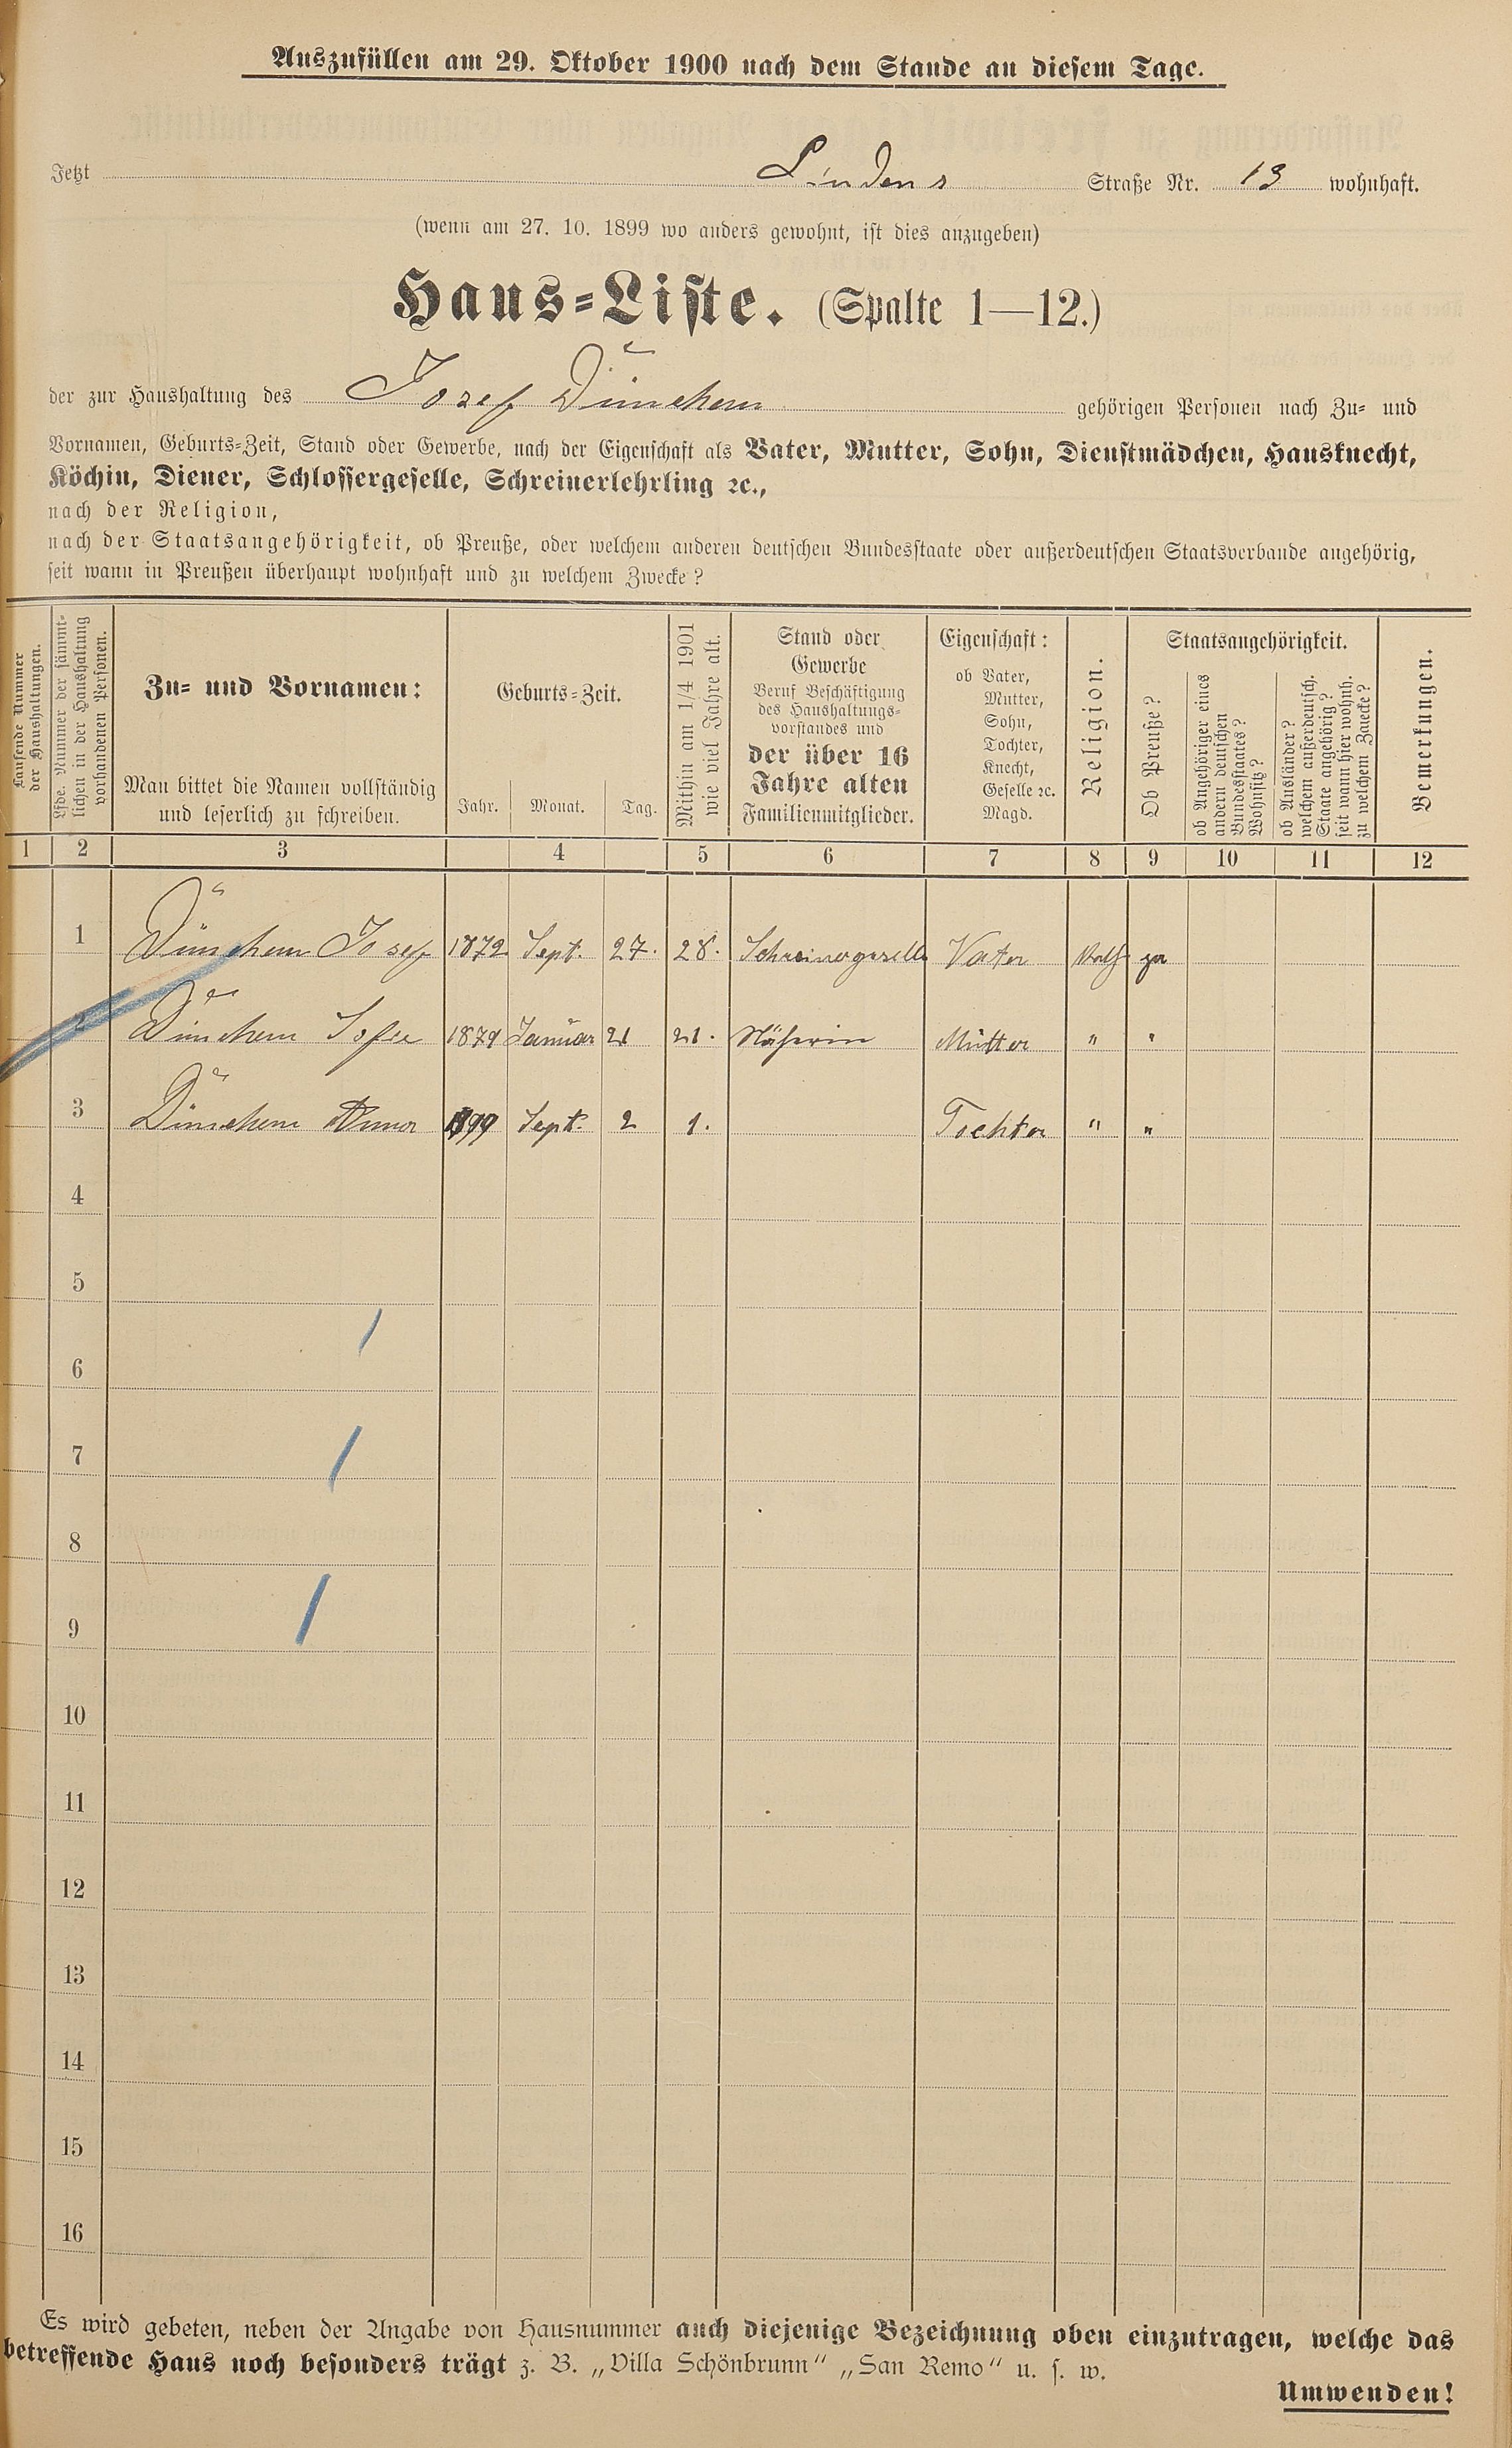 Auszufüllen am 29. Oktober 1900 nach dem Stande an diesem Tage.
Jetzt Lindens Straße Nr. 13 wohnhaft.
(wenn am 27. 10. 1899 wo anders gewohnt, ist dies anzugeben)
Haus-Liste. (Spalte 1—12.)
der zur Haushaltung des Josef Dünchem gehörigen Personen nach Zu- und
Vornamen, Geburts-Zeit, Stand oder Gewerbe, nach der Eigenschaft als Vater, Mutter, Sohn, Dienstmädchen, Hausknecht,
Köchin, Diener, Schlossergeselle, Schreinerlehrling ꝛc.,
nach der Religion,
nach der Staatsangehörigkeit, ob Preuße, oder welchem anderen deutschen Bundesstaate oder außerdeutschen Staatsverbande angehörig,
seit wann in Preußen überhaupt wohnhaft und zu welchem Zwecke?
Laufende Nummer
der Haushaltungen.
Lfde. Nummer der sämmt-
lichen in der Haushaltung
vorhandenen Personen.
Zu- und Vornamen:
Man bittet die Namen vollständig
und leserlich zu schreiben.
Geburts-Zeit.
Jahr. Monat. Tag.
Mithin am 1/4 1901
wie viel Jahre alt.
Stand oder
Gewerbe
Beruf Beschäftigung
des Haushaltungs-
vorstandes und
der über 16
Jahre alten
Familienmitglieder.
Eigenschaft:
ob Vater,
Mutter,
Sohn,
Tochter,
Knecht,
Geselle ꝛc.
Magd.
Religion.
Staatsangehörigkeit.
Ob Preuße?
ob Angehöriger eines
andern deutschen
Bundesstaates?
Wohnsitz?
ob Ausländer?
welchem außerdeutsch.
Staate angehörig?
seit wann hier wohnh.
zu welchem Zwecke?
Bemerkungen.
1 2 3 4 5 6 7 8 9 10 11 12
1 Dünchem Josef 1872 Sept. 27. 28. Schreinergeselle Vater Kath ja
2 Dünchem Sofie 1879 Januar 21 21. Näherin Mutter " "
3 Dünchem Anna 1899 Sept. 2 1. Tochter " "
4
5
6
7
8
9
10
11
12
13
14
15
16
Es wird gebeten, neben der Angabe von Hausnummer auch diejenige Bezeichnung oben einzutragen, welche das
betreffende Haus noch besonders trägt z. B. „Villa Schönbrunn“ „San Remo“ u. s. w.
Umwenden!